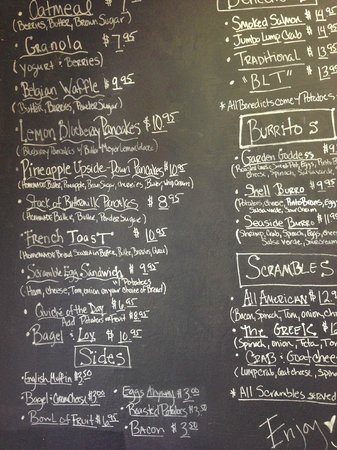 Oatmeal $7
(Berries, Butter, Brown Sugar)
• Granola $7.95
(Yogurt + Berries)
• Belgian Waffle $9.95
(Butter, Berries, Powder Sugar)
• Lemon Blueberry Pancakes $10.95
(Blueberry Pancakes w/ Butter
• Pineapple Upside-Down Pancakes $10.95
(Homemade Butter, Pineapple, Brown Sugar, cherries, Butter, Whip Cream)
• Stack of Buttermilk Pancakes $8.95
(Homemade Batter, Butter, Powder Sugar)
• French Toast $10.95
(Homemade Bread Butter, Berries,
• Scramble Egg Sandwich $9.95
w/ Potatoes
(Ham, cheese, Tom, onion on your choice of Bread)
• Quiche of the Day $6.95
Add Potatoes or Fruit $8.95
• Bagel + Lox $10.95
Sides
• English Muffin $3.50
• Bagel + Cream Cheese $3.00
• Bowl of Fruit $6.95
• Eggs Anyway $3.00
• Roasted Potatoes $3.50
• Bacon $3.00
• Smoked Salmon $14.95
• Jumbo Lump Crab $14
• Traditional $13
• "BLT" $13.95
*All Benedicts come w/ Potatoes
Burritos
• Garden Goddess $
• Shell Burro $9
(Potatoes, cheese, Pinto Beans, Egg
Salsa verde, Sour Cream
• Seaside Burro $
(Shrimp, Crab, Spinach, Eggs, Cheese
Salsa Verde, Sour Cream
Scrambles
• All American $12
(Bacon, Spinach, Tom, onion, chee
• The Greek $12
(Spinach, onion, Feta, Tom,
• Crab + Goat cheese
(Lump crab, Goat cheese, Spin
*All Scrambles Served
Enjoy